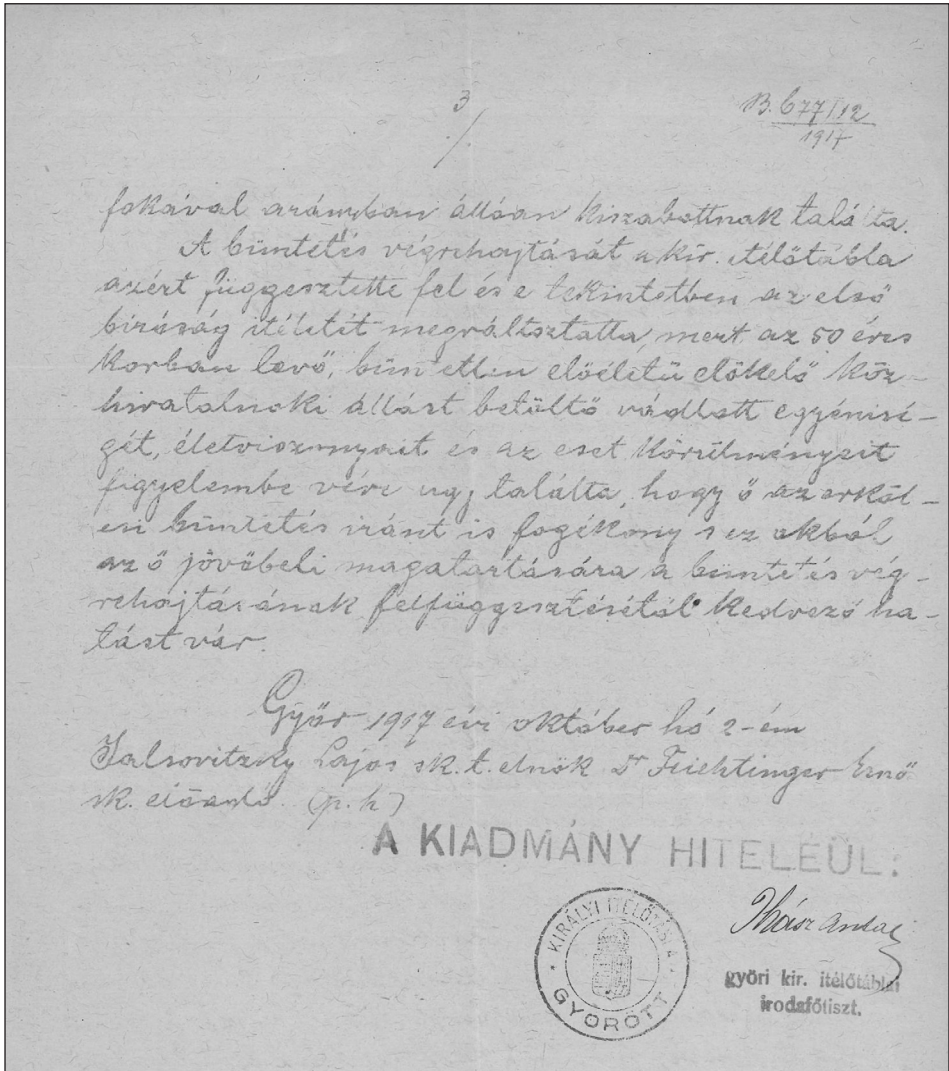 3
/.
B. 677/12
1917
fokával arányban állóan kiszabottnak találta.
A büntetés végrehajtását a kir. itélőtábla
azért függesztette fel és e tekintetben az első
biróság itéletét megváltoztatta, mert az 50 éves
korban levő, büntetlen előéletü előkelő köz-
hivatalnoki állást betöltő vádlott egyénisé-
gét, életviszonyait és az eset körülményeit
figyelembe véve ugy találta, hogy ő az erköl-
csi büntetés iránt is fogékony s ez okból
az ő jövőbeli magatartására a büntetés vég-
rehajtásának felfüggesztésétől kedvező ha-
tást vár.
Győr 1917 évi október hó 2-én
Jalsovitzky Lajos sk. t. elnök Dr Feichtinger Ernő
sk. előadó. (p. h)
A KIADMÁNY HITELÉÜL:
KIRÁLYI ITÉLŐTÁBLA
GYŐRÖTT
györi kir. itélőtáblai
irodafőtiszt.